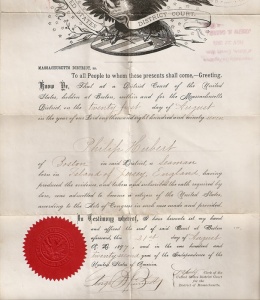 UNITED STATES DISTRICT COURT.
MASSACHUSETTS DISTRICT, ss.
To all People to whom these presents shall come,—Greeting.
Know Ye, That at a District Court of the United
States, holden at Boston, within and for the Massachusetts
District, on the Twenty first day of August
in the year of our Lord one thousand eight hundred and ninety
Philip Hubert
of Boston in said District, a Seaman
born in Island of Jersey, England, having
produced the evidence and taken and subscribed the oath required by
law, was admitted to become a citizen of the United States, according
to the Acts of Congress in such case made and provided.
In Testimony whereof, I have hereunto set my hand
and affixed the seal of said Court at Boston
aforesaid, this 21st day of August
A. D. 189 and in the one hundred and
year of the Independence of the
United States of America.
Clerk of the
United States District Court for the
District of Massachusetts.